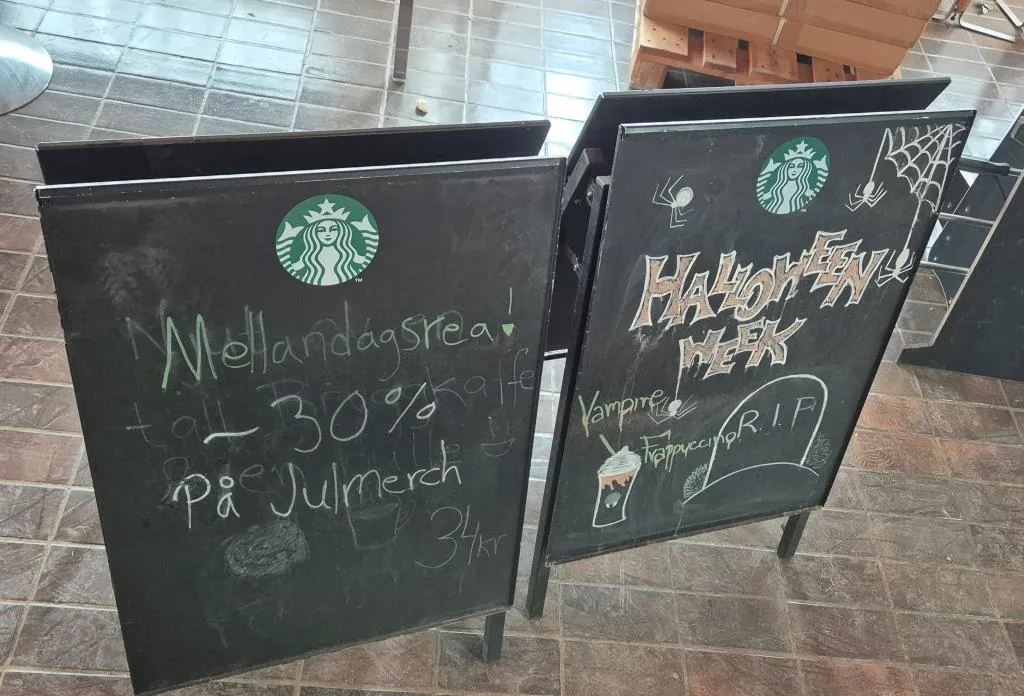 Mellandagsrea!
- 30%
på Julmerch
34kr
HALLOWEEN
WEEK
Vampire
Frappuccino
R.I.P